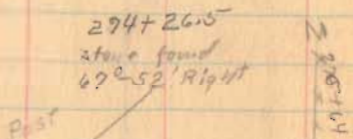 294+26.5
stone found
67°-52' Right
Post